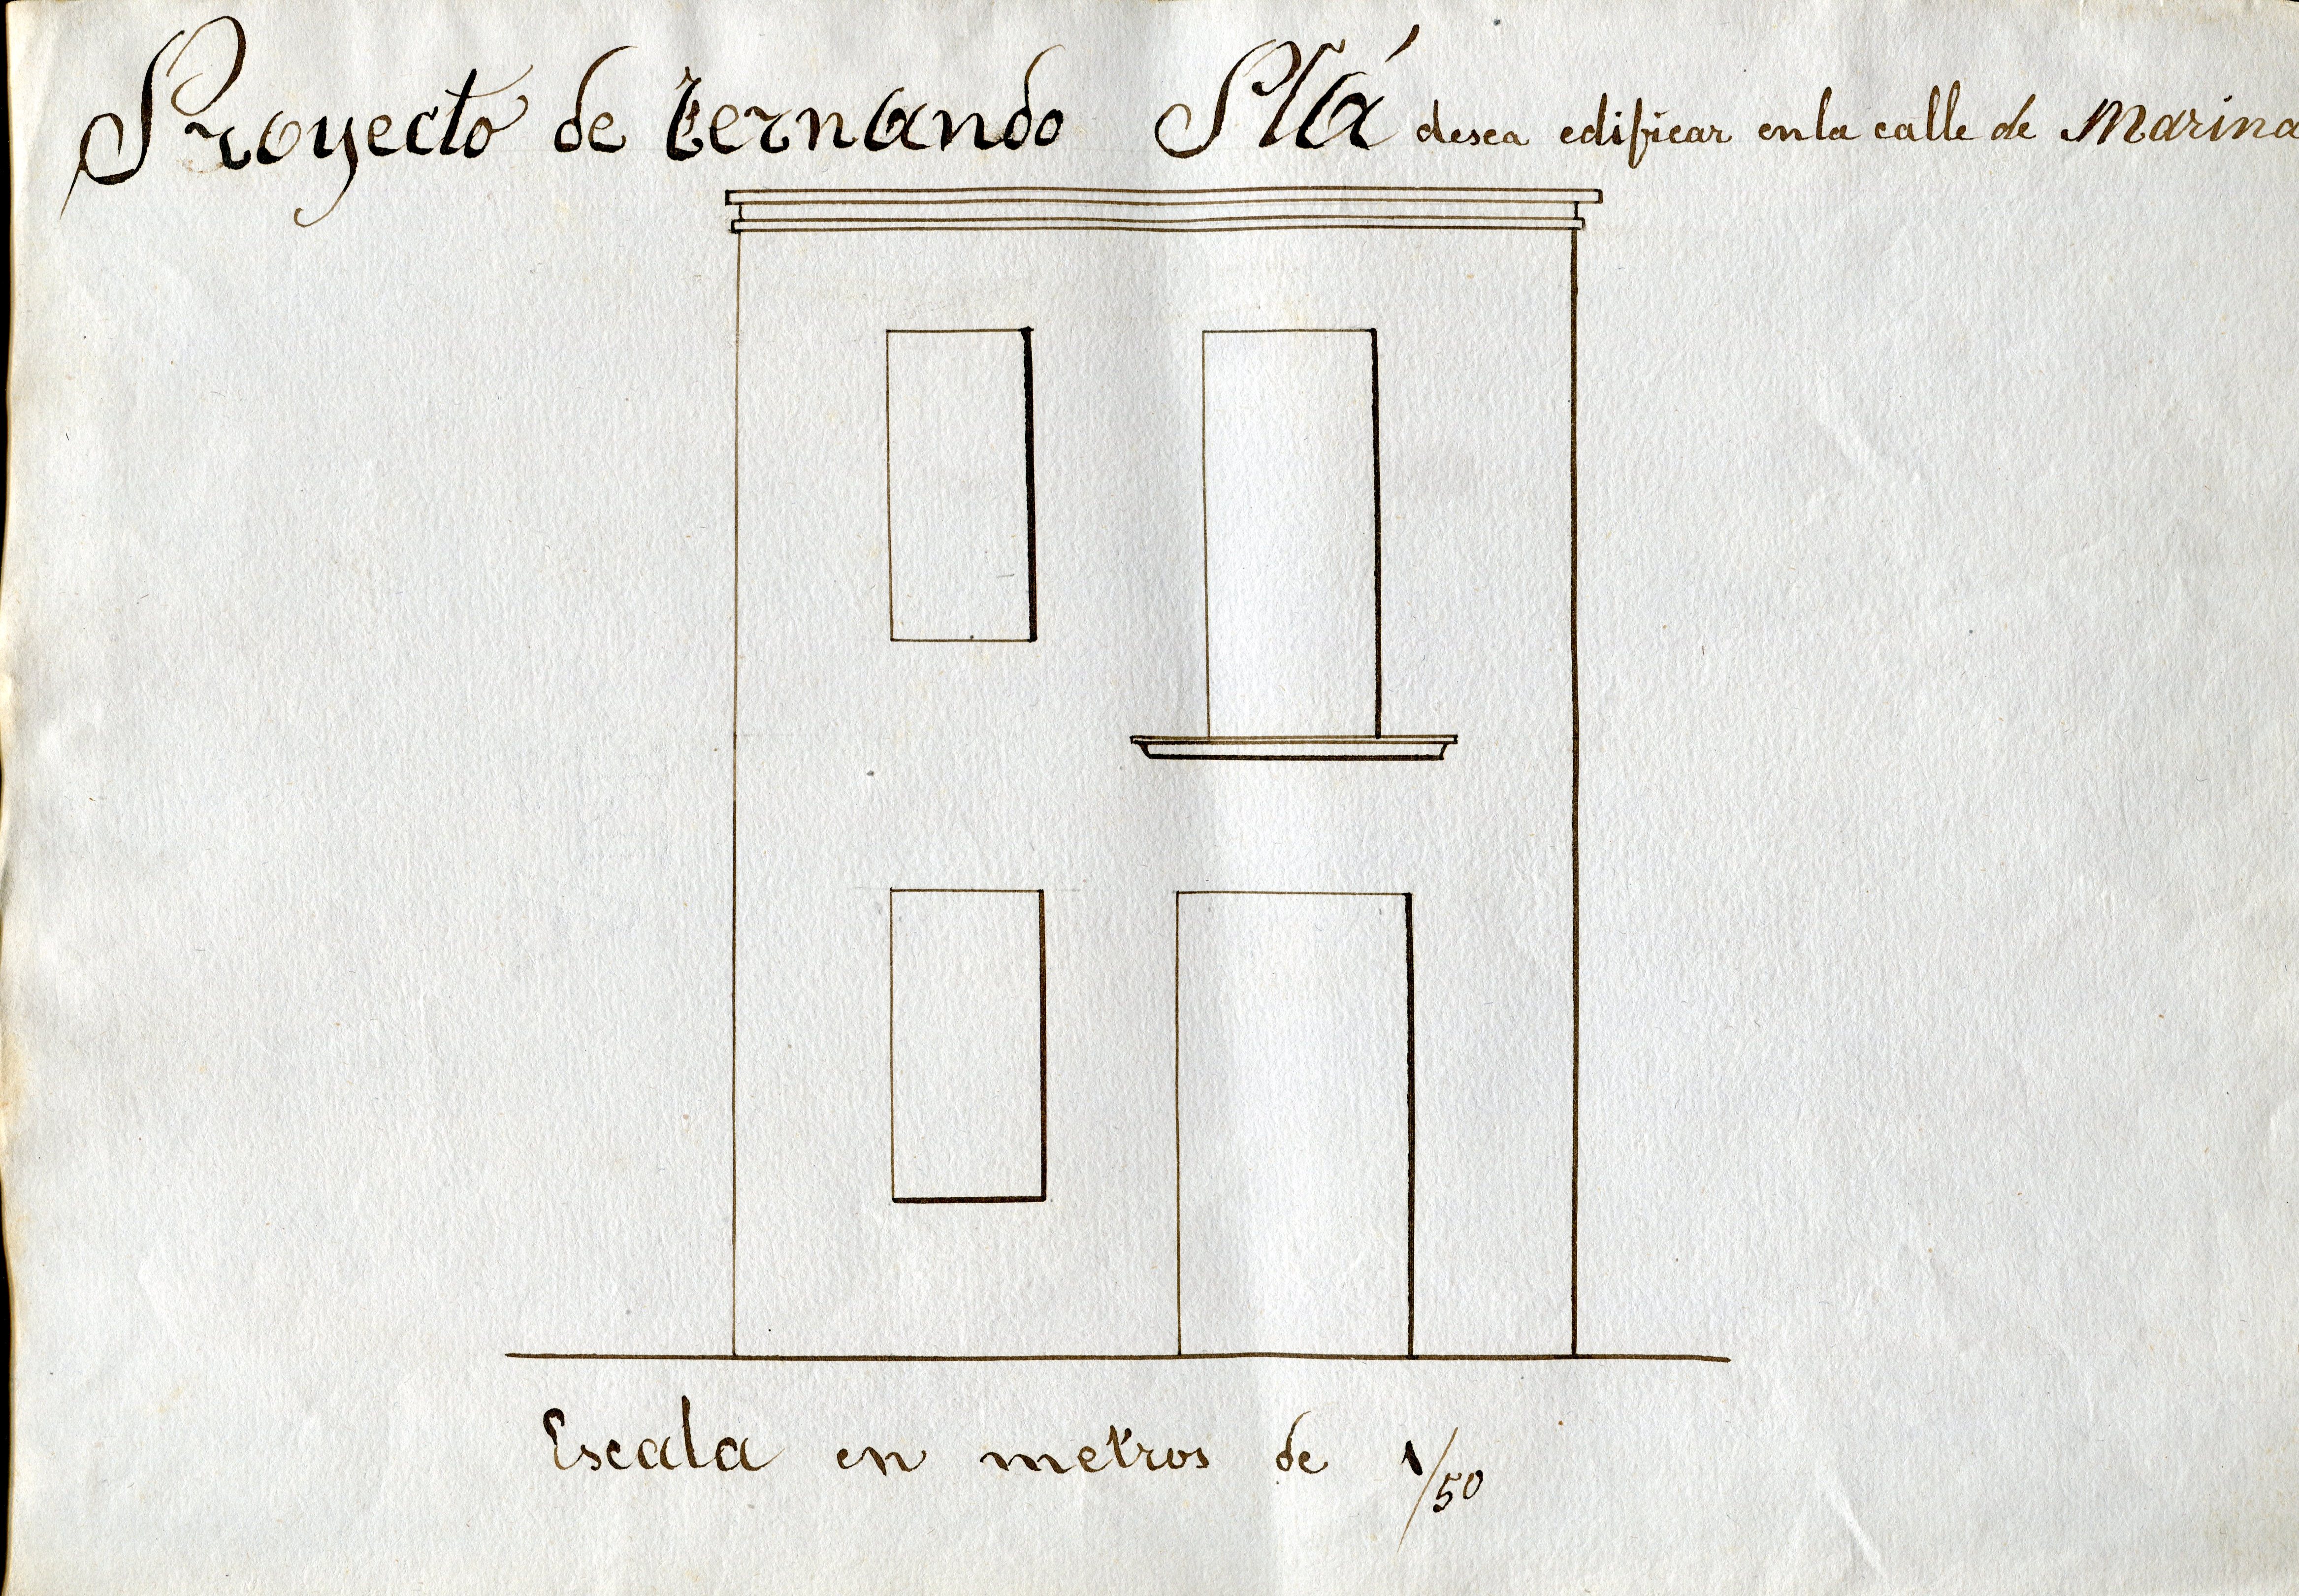 Proyecto de Fernando Plá desea edificar en la calle de Marina
Escala en metros de 1/50